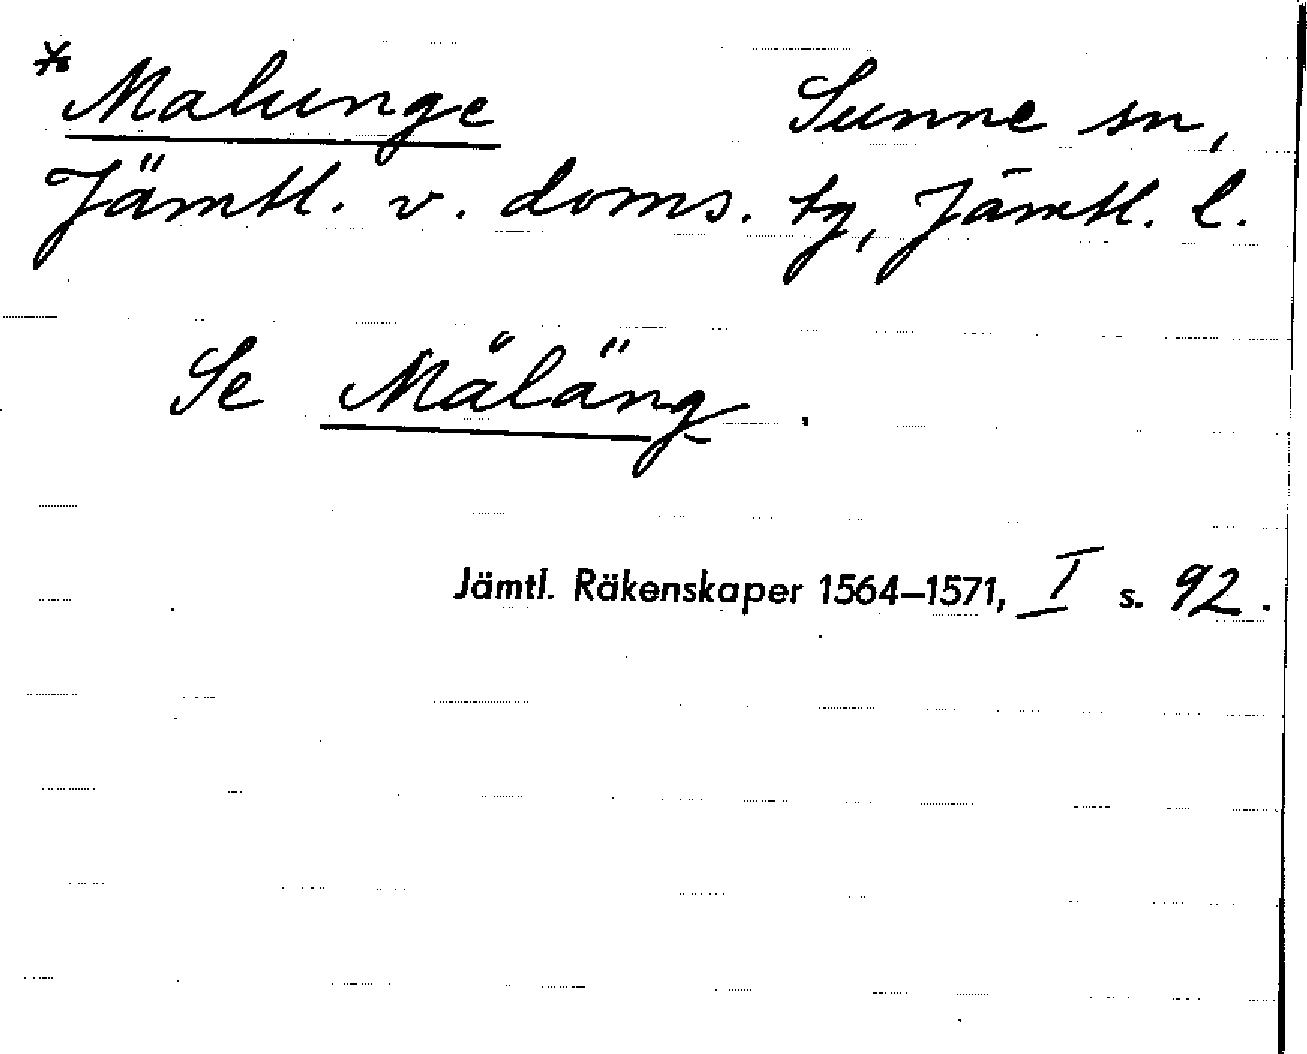 *Malunge Sunne sn,
Jämtl. v. doms. tg, Jämtl. l.
Se Mäläng.
Jämtl. Räkenskaper 1564–1571, I s. 92.